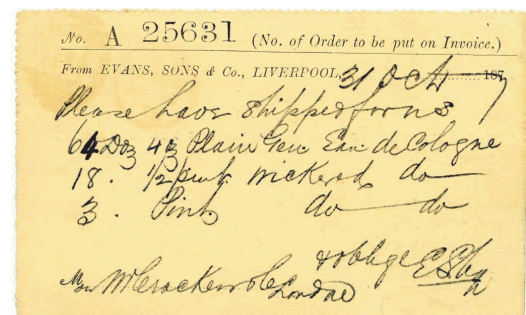 No. A 25631 (No. of Order to be put on Invoice.)
From EVANS, SONS & Co., LIVERPOOL, 31 Oct 187 7
Please have shipped for us
Doz Plain Gen Eau de Cologne
18. 1/2 wickered do
3. Pints do do
& oblige
London